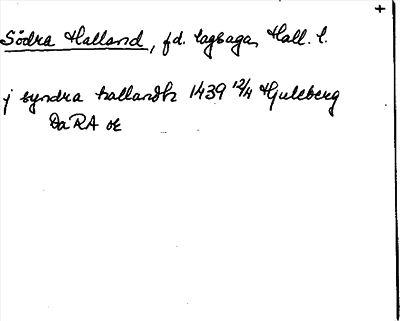 +
Södra Halland, fd. lagsaga, Hall. l.
j syndra hallandh 1439 12/4 Hjuleberg
DaRA or